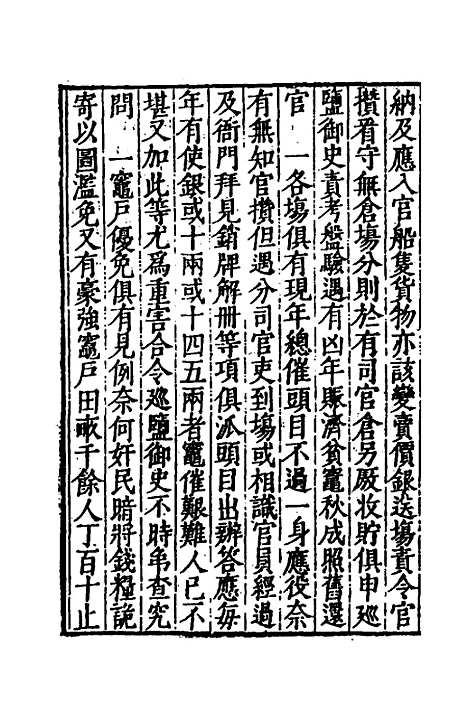 納及應入官船隻貨物亦該變賣價銀送塲責令官
攢看守無倉塲分則於有司官倉另厫收貯俱申廵
鹽御史責考盤驗遇有凶年賑濟貧竈秋成照舊還
官　一各塲俱有現年總催頭目不過一身應役奈
有無知官攢但遇分司官吏到塲或相識官員經過
及衙門拜見銷牌解冊等項俱派頭目出辦答應每
年有使銀或十兩或十四五兩者竈催艱難人已不
堪又加此等尤爲重害合令廵鹽御史不時弔查究
問　一竈戶優免俱有見例奈何奸民暗將錢糧詭
寄以圖濫免又有豪強竈戶田畝千餘人丁百十止